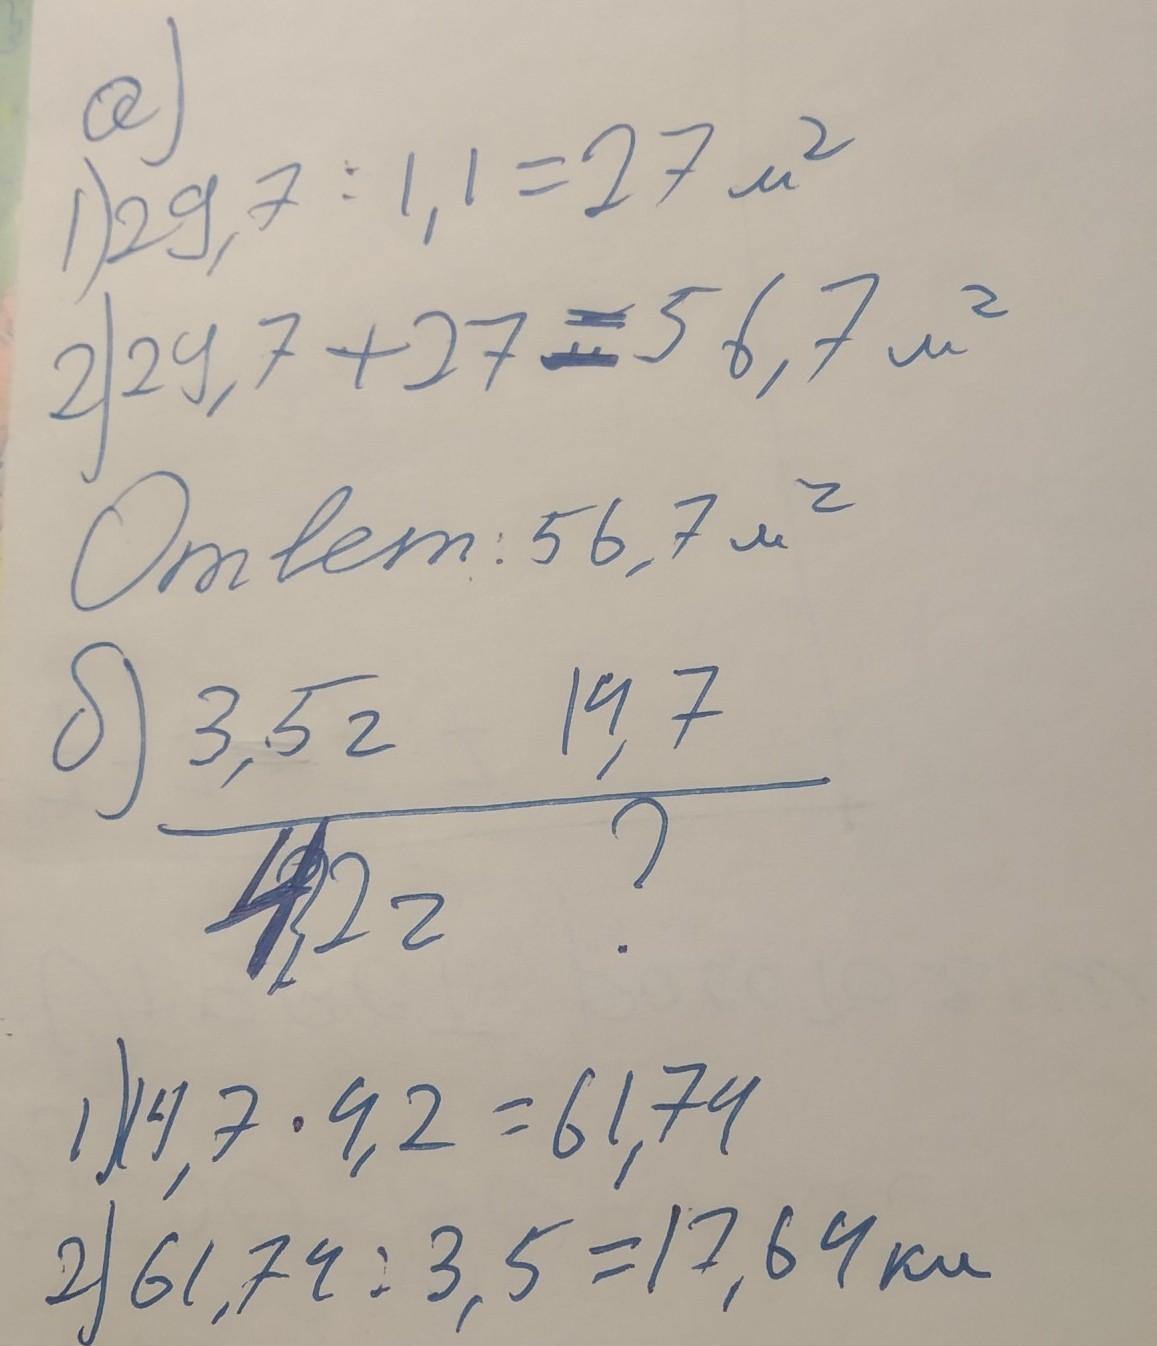 а)
1) 29,7 : 1,1 = 27 м²
2) 29,7 + 27 = 56,7 м²
Ответ: 56,7 м²
б) 3,5 г 14,7
4,2 г ?
1) 14,7 · 4,2 = 61,74
2) 61,74 : 3,5 = 17,64 км